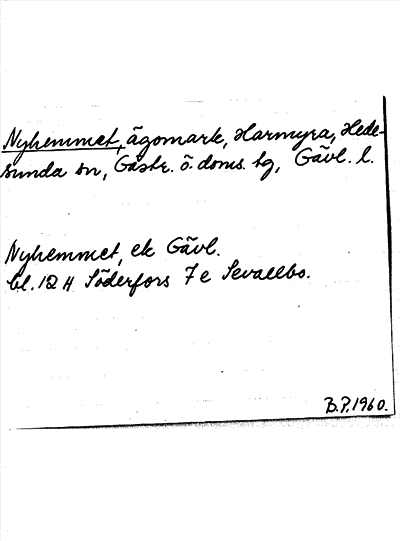 Nyhemmet, ägomark, Harmyra, Hede-
sunda sn, Gästr. ö. doms. tg, Gävl. l.
Nyhemmet, ek Gävl.
bl. 12 H Söderfors 7 e Sevallbo.
B.P. 1960.